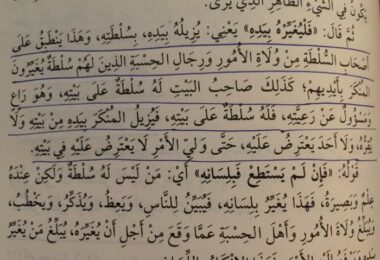 يَكُونُ فِي الشَّيْءِ الظَّاهِرِ الَّذِي يُرَى.
ثُمَّ قَالَ: «فَلْيُغَيِّرْهُ بِيَدِهِ» يَعْنِي: يُزِيلُهُ بِيَدِهِ، بِسُلْطَتِهِ، وَهَذَا يَنْطَبِقُ عَلَى
أَصْحَابِ السُّلْطَةِ مِنْ وُلَاةِ الْأُمُورِ وَرِجَالِ الْحِسْبَةِ الَّذِينَ لَهُمْ سُلْطَةٌ يُغَيِّرُونَ
الْمُنْكَرَ بِأَيْدِيهِمْ؛ كَذَلِكَ صَاحِبُ الْبَيْتِ لَهُ سُلْطَةٌ عَلَى بَيْتِهِ، وَهُوَ رَاعٍ
وَمَسْؤُولٌ عَنْ رَعِيَّتِهِ، فَلَهُ سُلْطَةٌ عَلَى بَيْتِهِ، فَيُزِيلُ الْمُنْكَرَ بِيَدِهِ مِنْ بَيْتِهِ وَلَا
يُقِرُّهُ، وَلَا أَحَدَ يَعْتَرِضُ عَلَيْهِ، حَتَّى وَلِيُّ الْأَمْرِ لَا يَعْتَرِضُ عَلَيْهِ فِي بَيْتِهِ.
قَوْلُهُ: «فَإِنْ لَمْ يَسْتَطِعْ فَبِلِسَانِهِ» أَيْ: مَنْ لَيْسَ لَهُ سُلْطَةٌ وَلَكِنْ عِنْدَهُ
عِلْمٌ وَبَصِيرَةٌ، فَهَذَا يُغَيِّرُ بِلِسَانِهِ، فَيُبَيِّنُ لِلنَّاسِ، وَيَعِظُ، وَيُذَكِّرُ، وَيَخْطُبُ،
وَيُبَلِّغُ وُلَاةَ الْأُمُورِ وَأَهْلَ الْحِسْبَةِ عَمَّا وَقَعَ مِنْ أَجْلِ أَنْ يُغَيِّرُهُ، يُبَلِّغُ مَنْ يُغَيِّرُ